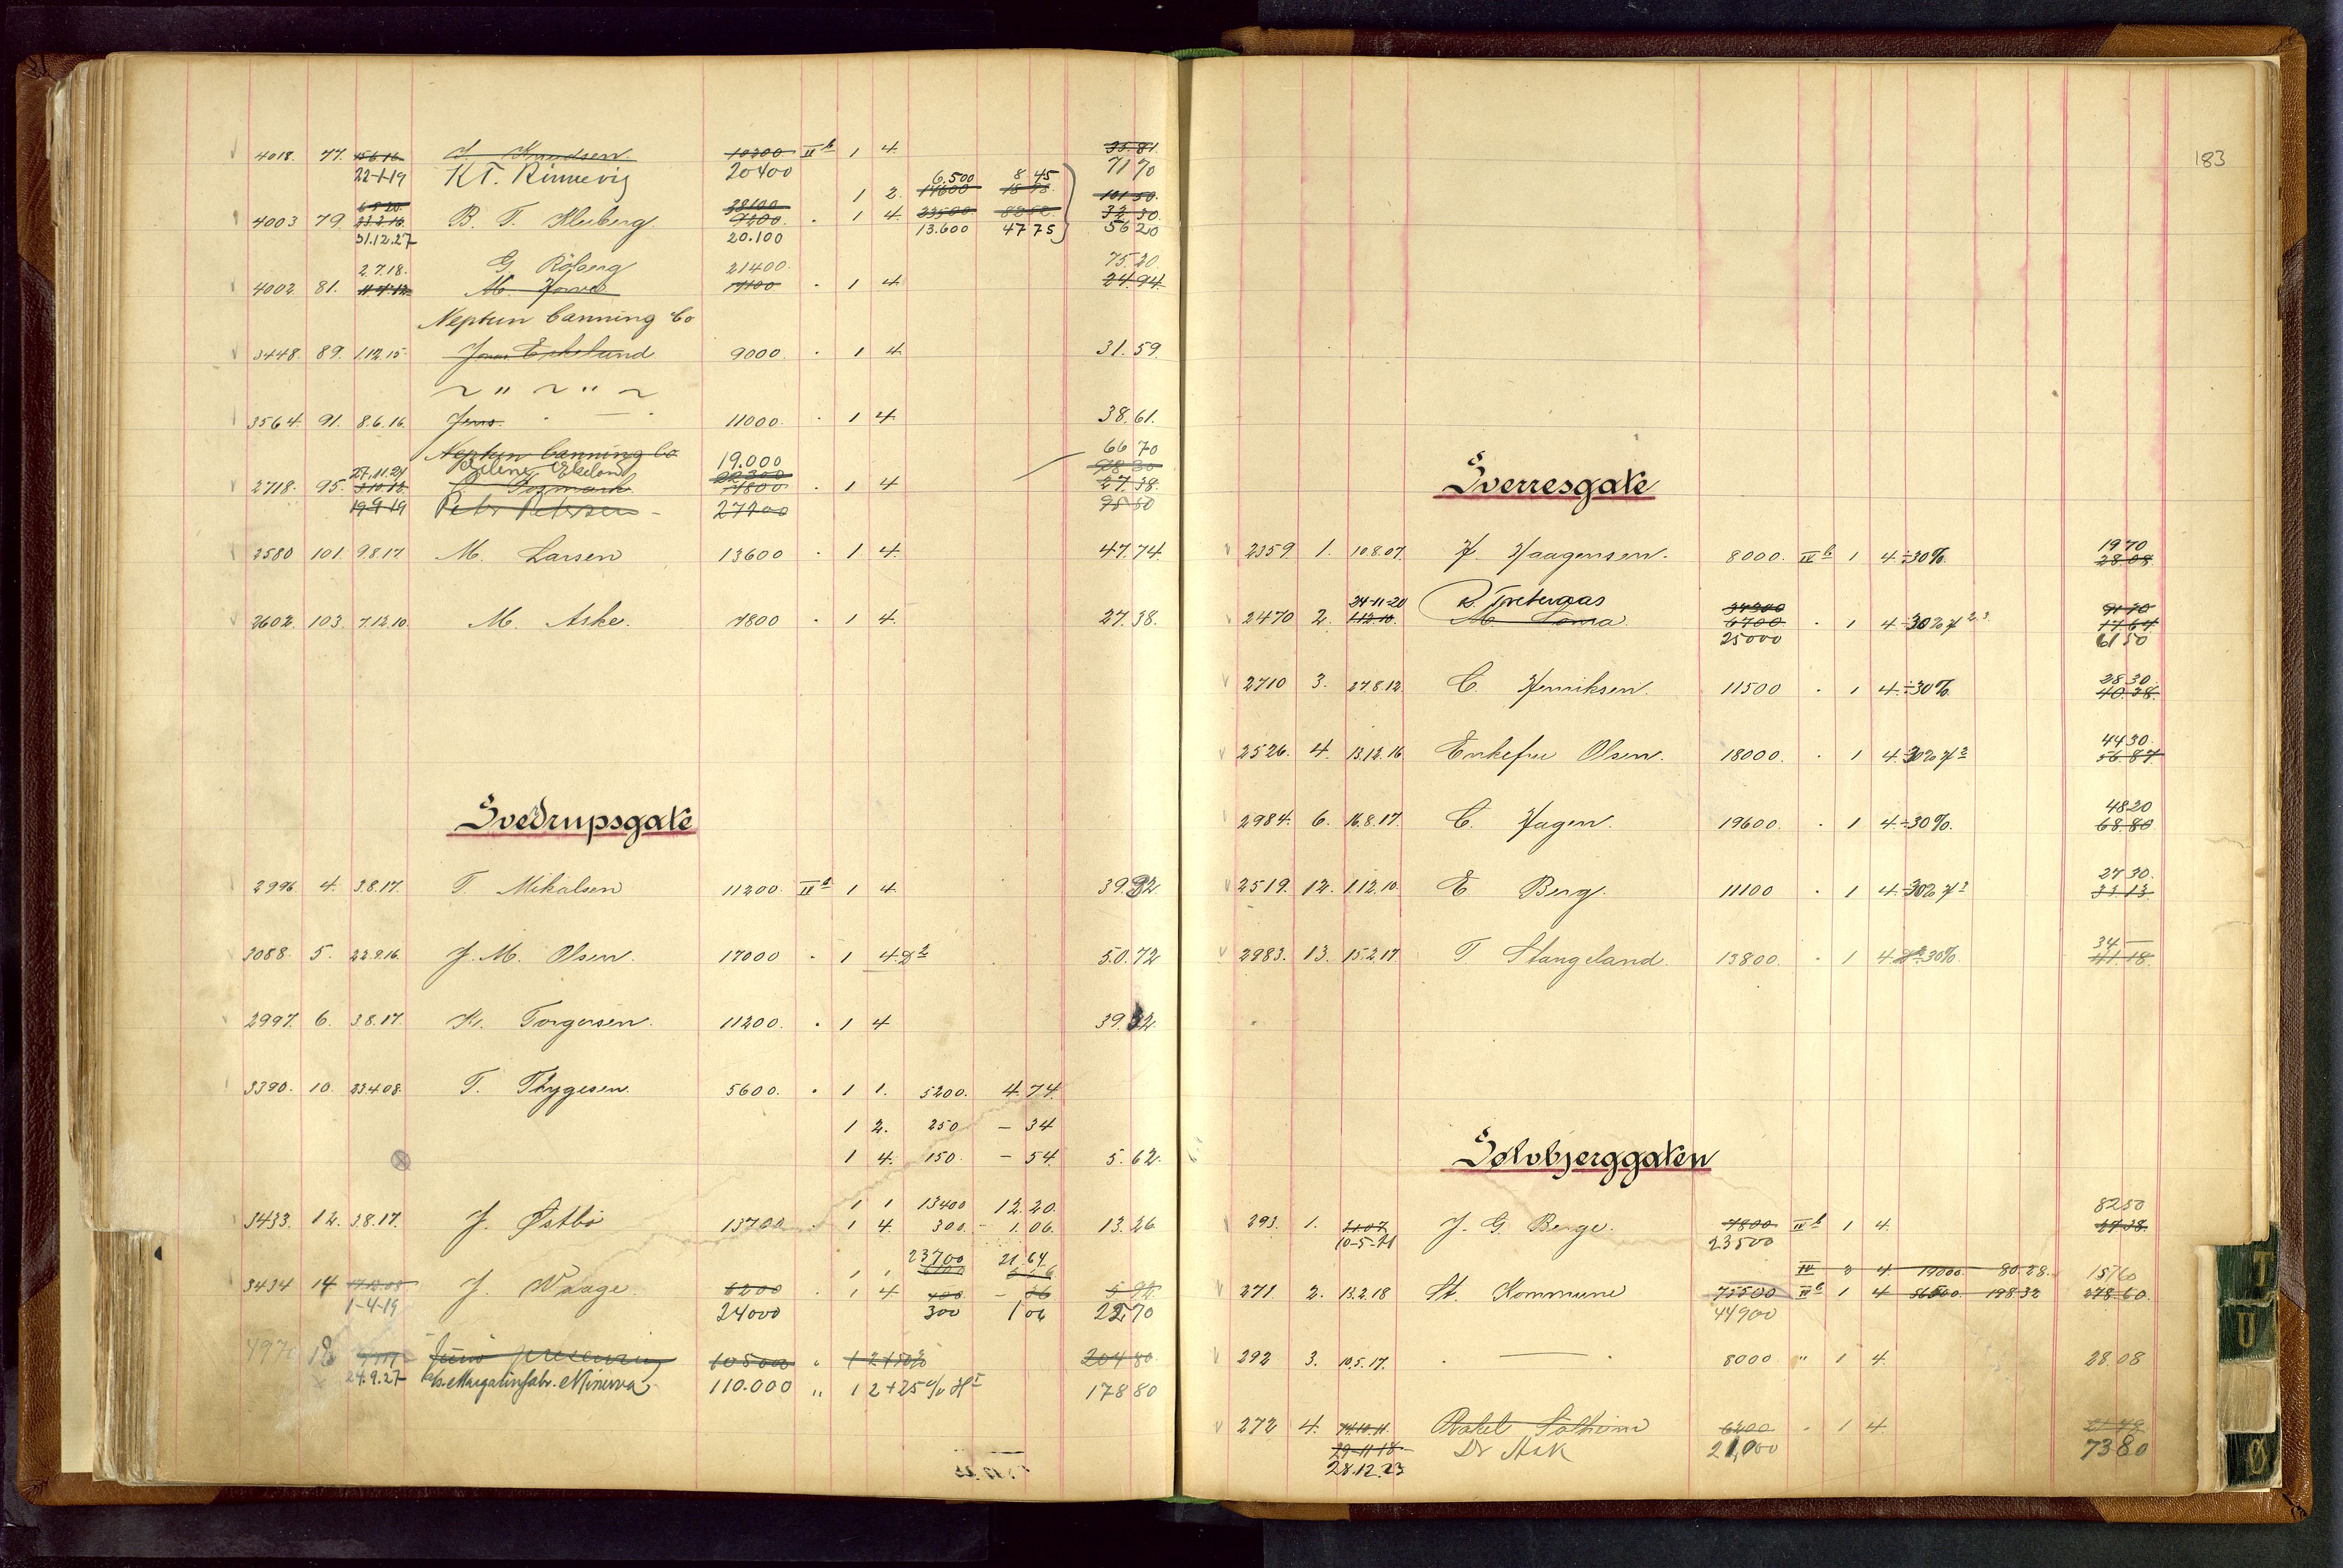 4018. 77. 15.6.16 J. Knudsen. 10200 II b 1 4. 35.81.
22-1-19 K.T. Rinnevig 20400 71 70
6.500 8 45
1 2. 14600 18 98. 101 50.
6 5 20. 38100
4003 79. 23.2.16 B. T. Kleiberg. 9200. . 1 4. 23500 82 52. 32 30.
31.12.27 20.100 13.600 47 75 56 20
2.7.18. G. Röberg 21400. 75.20.
4002 81. 11.4.12. M. 7100 . 1 4. 24.94.
Neptun Canning Co
3448. 89. 1.12.15. Jens Eikeland 9000. . 1 4. 31.59.
~ " ~ " ~
3564. 91. 8.6.16. Jens. - — - 11000. . 1 4. 38.61.
Neptun Canning Co 66 70
27.11.21 Helene Eikeland 19.000 98 30
2718. 95. 3.10.12. 22.300 7800 . 1 4 27.38.
19-9-19 Peter Petersen - 27200 95 50
2580 101. 9.8.17. M. Larsen 13600 . 1 4. 47.74.
2602. 103. 7.12.10. M. Aske. 7800 . 1 4. 27.38.
Sverdrupsgate
2996 4. 3.8.17. T. Mikalsen 11200. II b 1 4 39 32.
3088. 5. 22.9.16. J. M. Olsen. 17000 . 1 4 D 2 50.72
2997. 6. 3.8.17. Kr. Torgersen. 11200. . 1 4 39.32.
3390. 10. 23.4.08. T. Thygesen. 5600. . 1 1. 5200. 4.74.
1 2. 250 – 34
1 4. 150. – 54. 5.62.
1 1 13400 12.20.
3433. 12. 3.8.17. J. Østbö 13700 . 1 4. 300.- 1.06. 13.26
23700 21.64.
3434 14 17.12.08 J. Waage. 6200 . 1 4 400. – 36 5 92
1-4-19 24000 300 1 06 22 70
497 18 10500 " 1 2+50% 204 80
24.9.27 A/s. Margarinfabr. Minerva 110.000 " 1 2+25% H I 178 80
183
Sverresgate
19 70
2359. 1. 10.8.07. H. Haagensen. 8000. IV b 1 4.÷30%. 28.08
24-11-20 R. Tveteraas 34300 91 70
2470 2. 1.12.10. M. Loma. 6700 . 1 4 ÷30% H 2.3 17 64
25000 61 50
28 30.
2710 3. 27.8.12. C. Henriksen. 11500 . 1 4.÷30% 40.38.
44 30.
2526. 4. 13.12.16 Enkefru Olsen. 18000. . 1 4.÷30% H 2 56.87
48 20
2984. 6. 16.8.17. C. Hagen. 19600. . 1 4.÷30%. 68.80
27 30.
2519. 12. 1.12.10. E Berg. 11100 . 1 4.÷30% H 2 33.13.
34 —
2983. 13. 15.2.17 T Stangeland. 13800. . 1 4 ÷30%. 41.18.
Sölvbjerggaten
82 50
293. 1. 2.1.07 J. G. Berge. 7800 II b 1 4. 27.38.
10-5-21 23500
IV 2 4. 19000. 80.28. 157 60
271 2. 13.2.18 St. Kommune 75500 II b 1 4 56500. 198.32 278.60.
44900
292 3. 10.5.17. . — . 8000 " 1 4. 28.08
272 4. 14.10.11. Rakel Solheim 6200 . 1 4. 21.78
29-11-18 Dr Ask 21,000 73 80
28.12.23
T
U
Ø